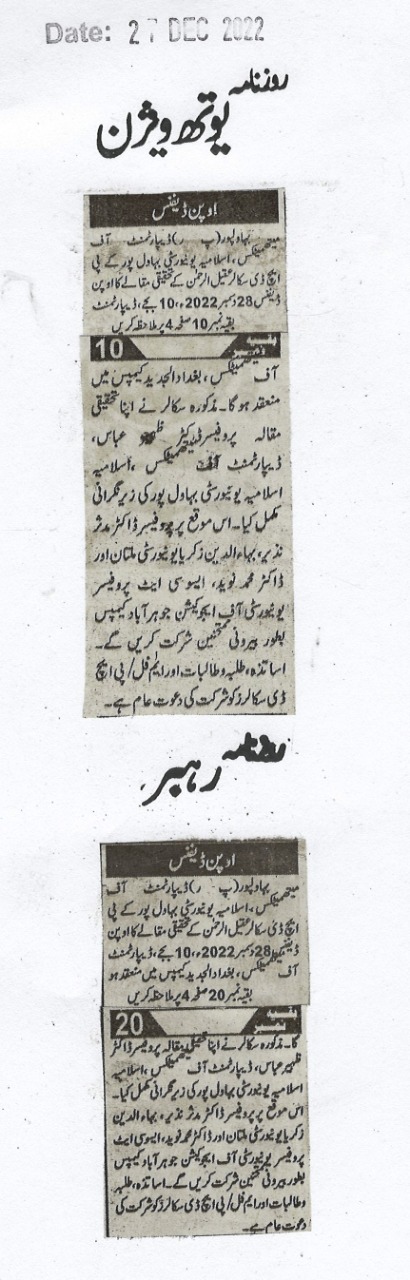 Date: 27 DEC 2022
روزنامہ
یوتھ ویژن
اوپن ڈیفنس
بہاولپور (پ ر) ڈیپارٹمنٹ آف
میتھمیٹکس، اسلامیہ یونیورٹی بہاول پور کے پی
ایچ ڈی سکالر عقیل الرحمن کے تحقیقی مقالے کا اوپن
ڈیفنس 28 دسمبر 2022ء، 10 بجے، ڈیپارٹمنٹ
بقیہ نمبر 10 صفحہ 4 پر ملاحظہ کریں
بقیہ نمبر 10
آف میتھمیٹکس، بغداد الجدید کیمپس میں
منعقد ہو گا۔ مذکورہ سکالر نے اپنا تحقیقی
مقالہ پروفیسر ڈاکٹر عباس،
ڈیپارٹمنٹ آف میتھمیٹکس، اسلامیہ
اسلامیہ یونیورسٹی بہاول پور کی زیر نگرانی
مکمل کیا۔ اس موقع پر پروفیسر ڈاکٹر مدثر
نذیر، بہاء الدین زکریا یونیورسٹی ملتان اور
ڈاکٹر محمد نوید، ایسوسی ایٹ پروفیسر
یونیورسٹی آف ایجوکیشن جوہر آباد کیمپس
بطور بیرونی ممتحنین شرکت کریں گے۔
اساتذہ، طلبہ و طالبات اور ایم فل/ پی ایچ
ڈی سکالرز کو شرکت کی دعوت عام ہے۔
روزنامہ
رہبر
اوپن ڈیفنس
بہاولپور (پ ر) ڈیپارٹمنٹ آف
میتھمیٹکس، اسلامیہ یونیورسٹی بہاول پور کے پی
ایچ ڈی سکالر عقیل الرحمن کے تحقیقی مقالے کا اوپن
ڈیفنس 28 دسمبر 2022ء، 10 بجے، ڈیپارٹمنٹ
آف میتھمیٹکس، بغداد الجدید کیمپس میں منعقد ہو
بقیہ نمبر 20 صفحہ 4 پر ملاحظہ کریں
بقیہ نمبر 20
گا۔ مذکورہ سکالر نے اپنا تحقیقی مقالہ پروفیسر ڈاکٹر
ظہیر عباس، ڈیپارٹمنٹ آف میتھمیٹکس، اسلامیہ
اسلامیہ یونیورسٹی بہاول پور کی زیر نگرانی مکمل کیا۔
اس موقع پر پروفیسر ڈاکٹر مدثر نذیر، بہاء الدین
زکریا یونیورسٹی ملتان اور ڈاکٹر محمد نوید، ایسوسی ایٹ
پروفیسر یونیورسٹی آف ایجوکیشن جوہر آباد کیمپس
بطور بیرونی ممتحنین شرکت کریں گے۔ اساتذہ، طلبہ
و طالبات اور ایم فل/ پی ایچ ڈی سکالرز کو شرکت کی
دعوت عام ہے۔